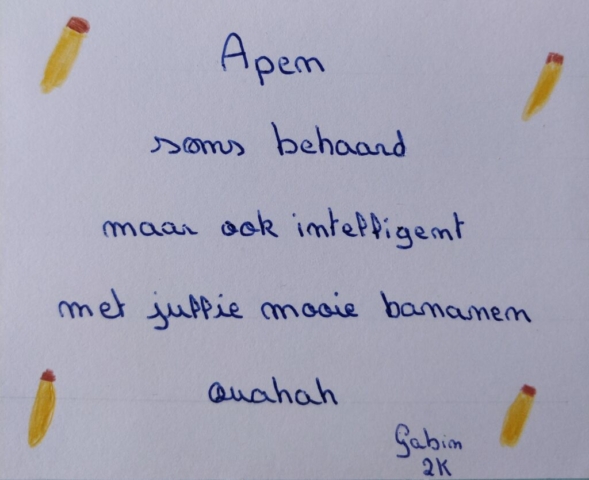 Apen
soms behaard
maar ook intelligent
met jullie mooie bananen
ouahah
Gabin
2K